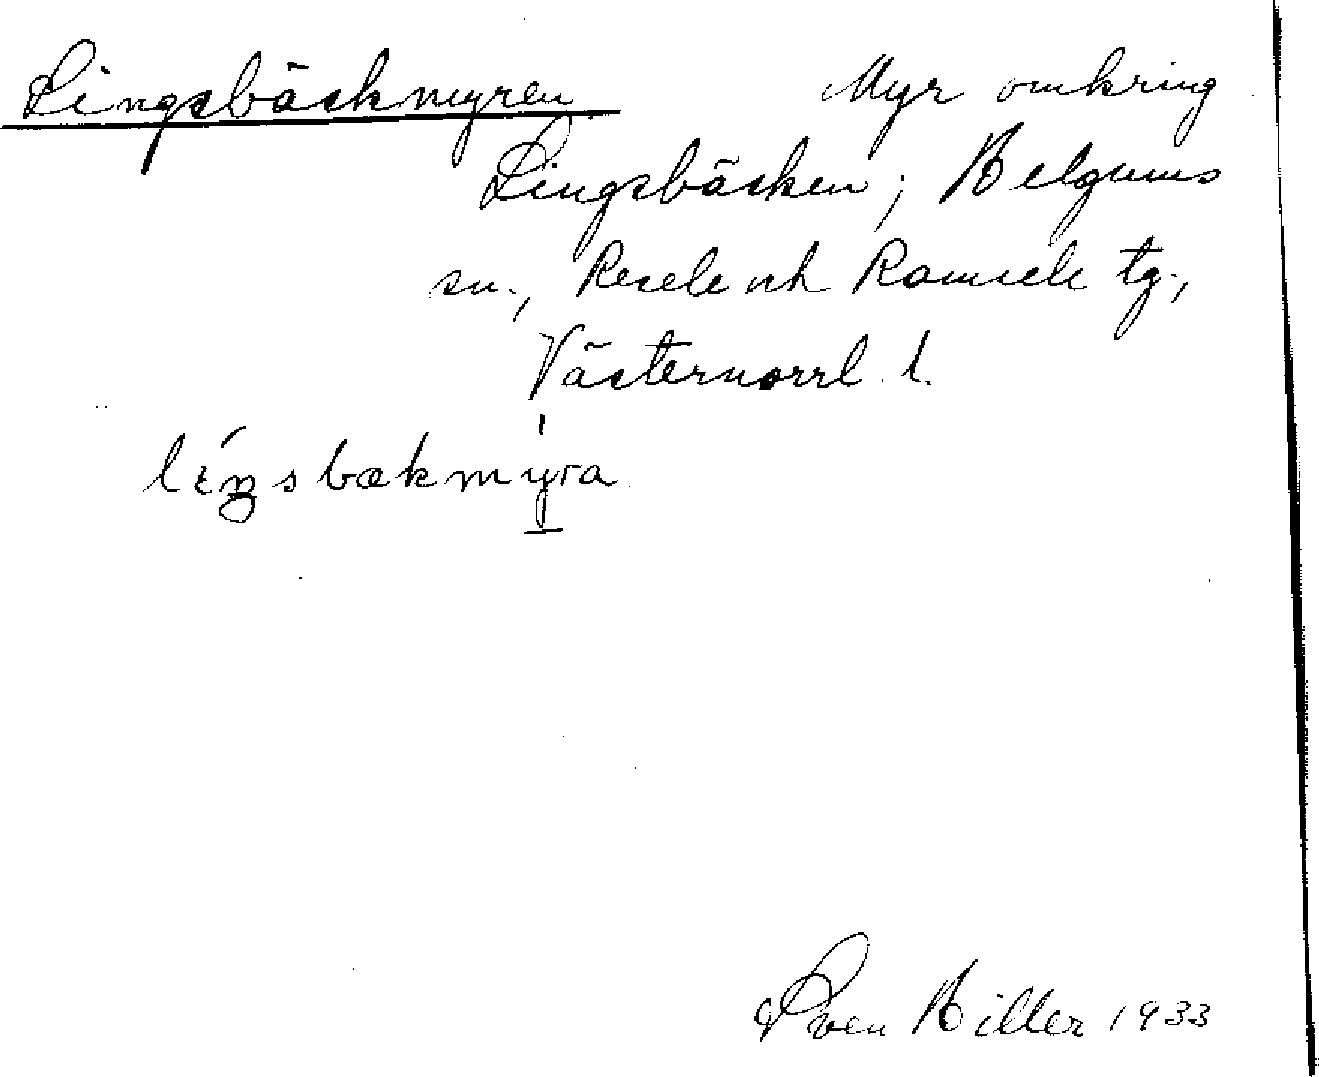 Lingsbäckmyren Myr omkring
Lingsbäcken; Helgums
sn., Resele och Ramsele tg.,
Västernorrl. l.
lıŋsbækmyra
Sven Hiller 1933